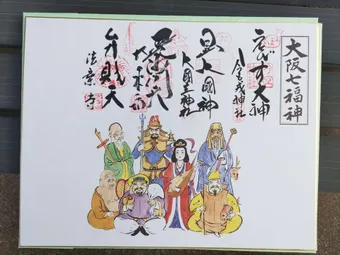 大阪七福神
ゑびす大神
今宮戎神社
日出大国神
大国主神社
毘沙門天
大乗坊
弁財天
法案寺